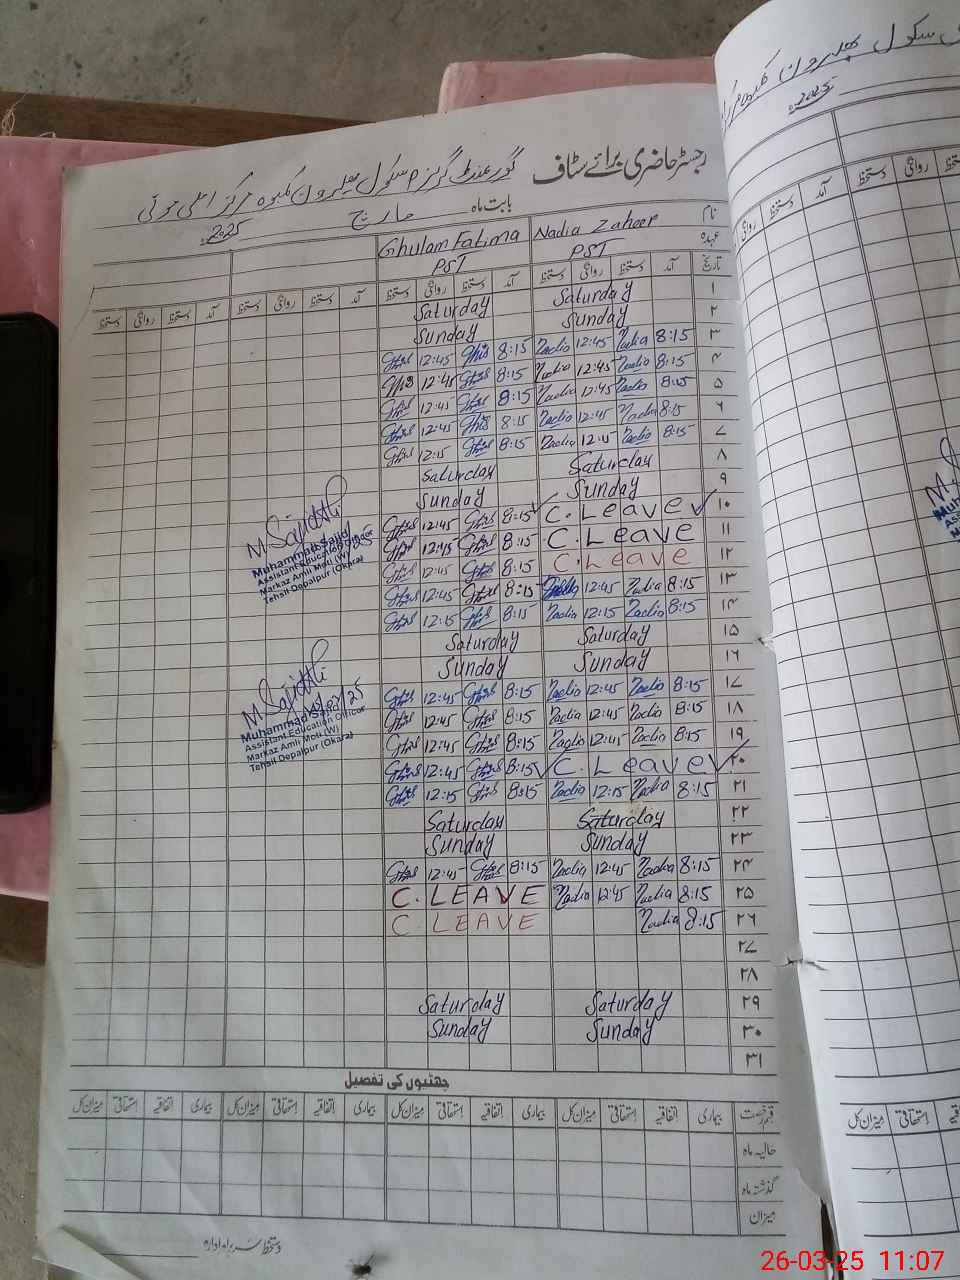 رجسٹر حاضری برائے سٹاف
بابت ماہ مارچ 2025ء
نام Nadia Zaheer Ghulam Fatima
عہدہ PST PST
تاریخ آمد دستخط روانگی دستخط آمد دستخط روانگی دستخط آمد دستخط روانگی دستخط آمد دستخط روانگی دستخط
۱ Saturday Saturday
۲ Sunday Sunday
۳ 8:15 Nadia 12:45 Nadia 8:15 12:45
۴ 8:15 Nadia 12:45 Nadia 8:15 12:45
۵ 8:15 Nadia 12:45 Nadia 8:15 12:45
۶ 8:15 Nadia 12:45 Nadia 8:15 12:45
۷ 8:15 Nadia 12:15 Nadia 8:15 12:15
۸ Saturday Saturday
۹ Sunday Sunday
۱۰ C. Leave 8:15 12:45
۱۱ C. Leave 8:15 12:45
۱۲ C. Leave 8:15 12:45
۱۳ 8:15 Nadia 12:45 8:15 12:45
۱۴ 8:15 Nadia 12:15 Nadia 8:15 12:15
۱۵ Saturday Saturday
۱۶ Sunday Sunday
۱۷ 8:15 Nadia 12:45 Nadia 8:15 12:45
۱۸ 8:15 Nadia 12:45 Nadia 8:15 12:45
۱۹ 8:15 Nadia 12:45 Nadia 8:15 12:45
۲۰ C. Leave 8:15 12:45
۲۱ 8:15 Nadia 12:15 Nadia 8:15 12:15
۲۲ Saturday Saturday
۲۳ Sunday Sunday
۲۴ 8:15 Nadia 12:45 Nadia 8:15 12:45
۲۵ 8:15 Nadia 12:45 Nadia C. LEAVE
۲۶ 8:15 Nadia C. LEAVE
۲۷
۲۸
۲۹ Saturday Saturday
۳۰ Sunday Sunday
۳۱
M. Sajid Ali
Muhammad Sajid
Assistant Education Officer
Markaz Amli Moti (W)
Tehsil Depalpur (Okara)
M. Sajid Ali
Muhammad Sajid
Assistant Education Officer
Markaz Amli Moti (W)
Tehsil Depalpur (Okara)
چھٹیوں کی تفصیل
قسم رخصت بیماری اتفاقیہ استحقاقی میزان کل بیماری اتفاقیہ استحقاقی میزان کل بیماری اتفاقیہ استحقاقی میزان کل بیماری اتفاقیہ استحقاقی میزان کل
حالیہ ماہ
گذشتہ ماہ
میزان
دستخط سربراہ ادارہ
2025ء
آمد دستخط روانگی دستخط
استحقاقی میزان کل
26-03-25 11:07